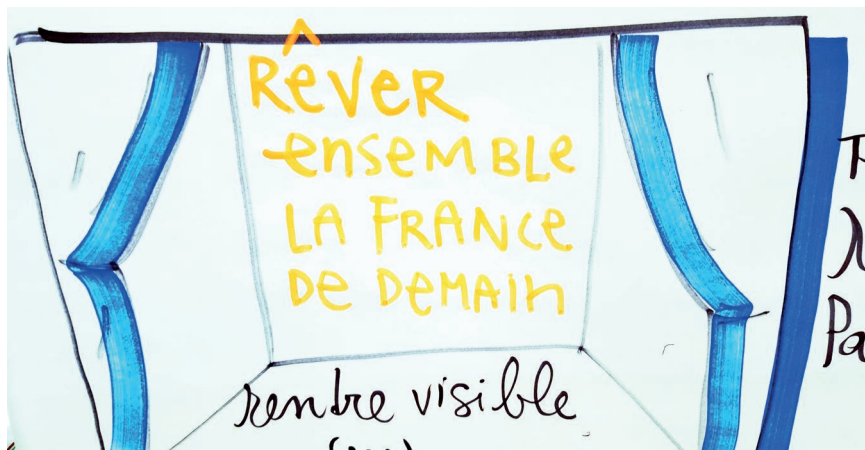 RêVER
ensemBLe
LA FRANCe
De DeMAIn
rendre visible